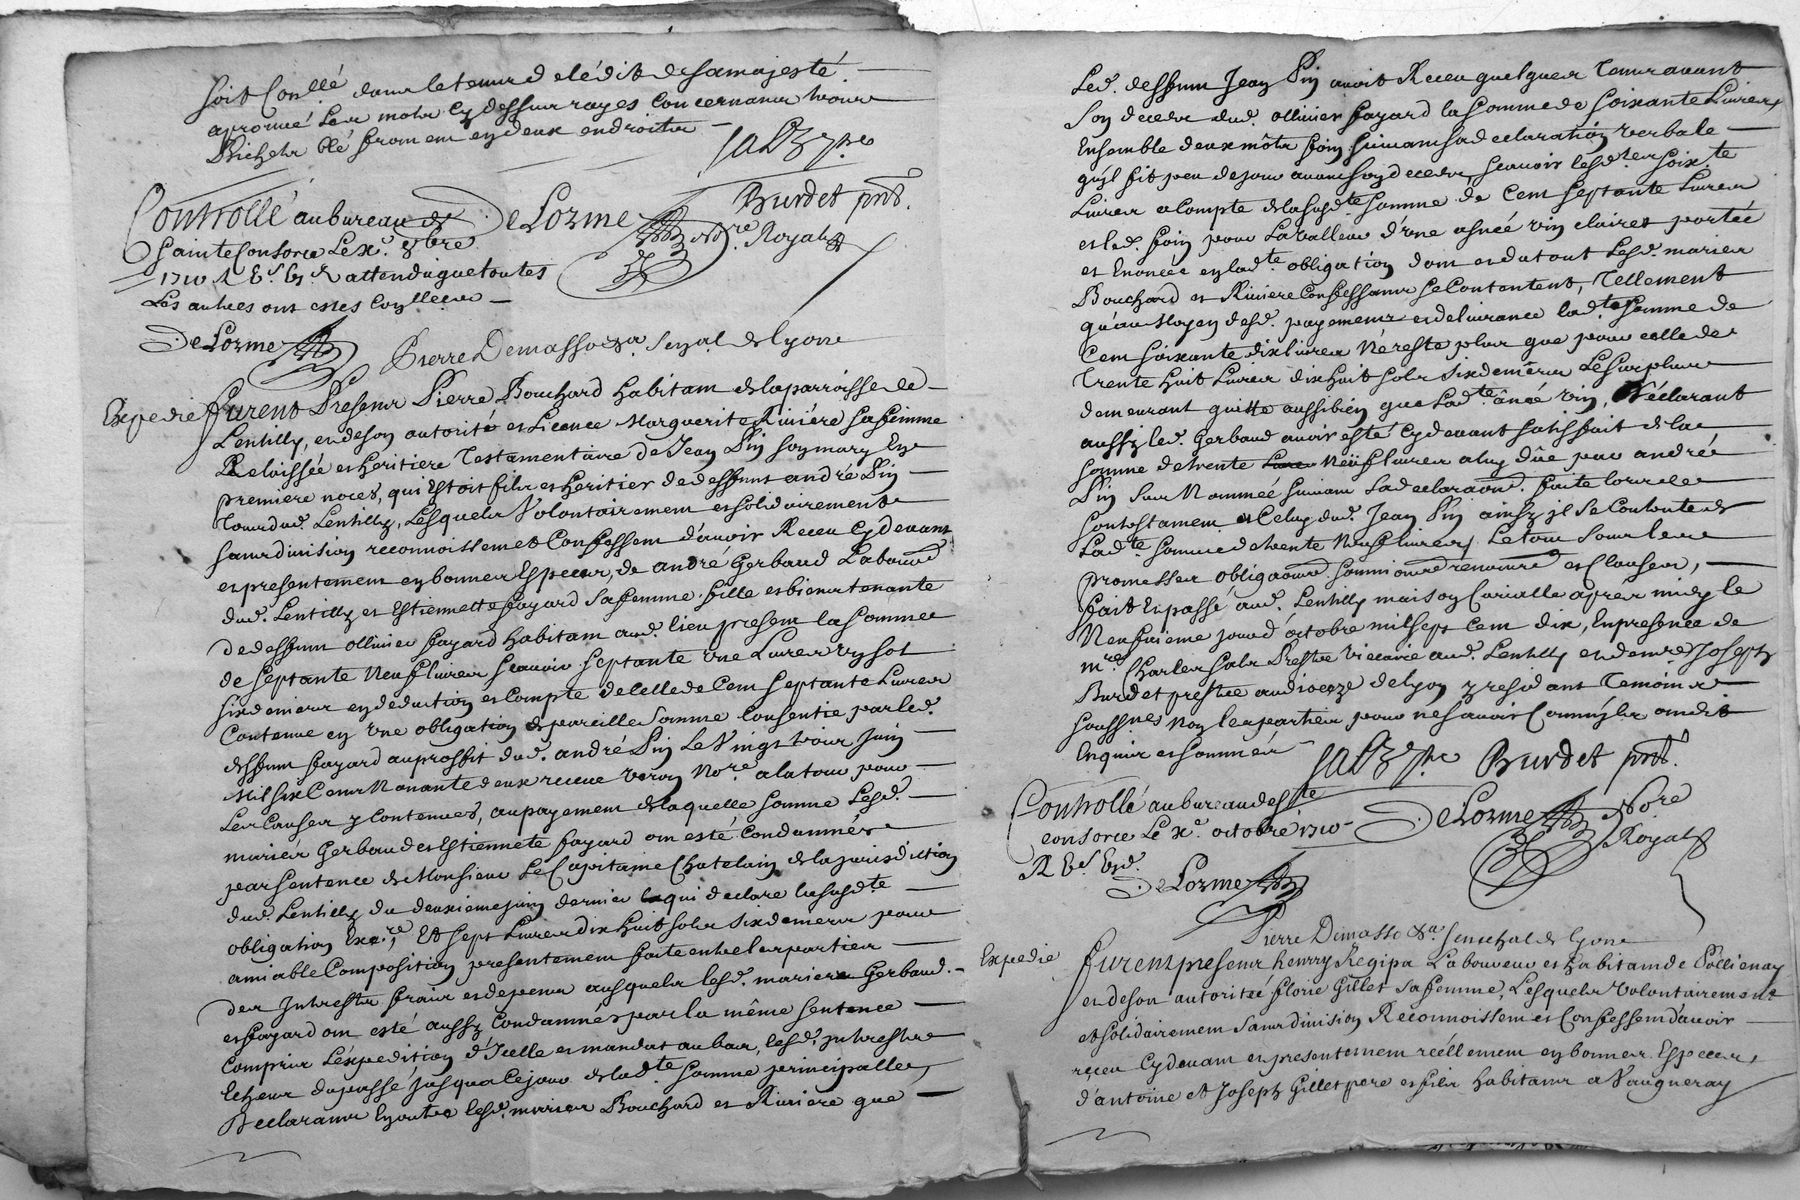 soit Conllé dans le temps de l'édit de sa majesté.
aprouvé les mots cy dessus rayes concernants trois
Bichets blé froment en deux endroits
Salz ptre
Burdet prêt.
Controllé au bureau de
DeLozme
Sainte Consorce Le Xe. 8bre
No.re Royal
1710 R attendu que toutes
Les autres ont estes Conllées
DeLozme
Pierre Demasso &a Senal de Lyon
Expedie
furent Presents Pierre Bouchard habitant de la parroisse de
Lentilly, et de son autorité et Licence Marguerite Riviére sa femme
Relaissée et heritiere Testamentaire de Jean Pin son mary En
premiere noces, qui Estoit fils et heritier de deffunt andré Pin
Tous dud. Lentilly, Lesquels Volontairement et solidairement
sans division reconnoissent et Confessent d'avoir Receu Cy devant
et presentement en bonnes Especes, de andré Gerbaud Laboureur
dud. Lentilly et Estiennette fayard sa femme fille et bientenante
de deffunt ollivier fayard habitant aud. lieu present la somme
de septante Neuf livres scavoir septante une Livres un sol
six deniers en déduction et Compte de Celle de Cent septante Livres
Contenue en une obligation de pareille somme Consentie par led.
deffunt fayard au proffit dud. andré Pin Le Vingt trois Juin
Mil six Cents Nonante deux receue No.re a la tour pour
Les Causes y Contenues, au payement de laquelle somme Lesd.
mariés Gerbaud et Estiennete fayard ont esté Condamnés
par sentence de Monsieur Le Capitaine Chatelain de la jurisdiction
dud. Lentilly du deuxieme juin dernier qui declare la susd.te
obligation Exre, Et sept Livres dix huit sols six deniers pour
amiable Composition presentement faite entre les parties
des Intrests frais et depens ausquels lesd. mariés Gerbaud.
et fayard ont esté aussy Condamnés par la même sentence
Compris L'expedition d'Icelle et mandat au bas, lesd. intrests
Echeus du passé jusqua Ce jour de lad.te somme principalle,
Declarants En outre lesd. mariés Bouchard et Riviere que
Led. deffunt Jean Pin avoit Receu quelques Temps avant
son deces dud. ollivier fayard la somme de soixante Livres
Ensemble deux môts foin suivant sa declaration verbale
qu'il fit peu de jour avant son deces, scavoir lesd.tes soix.te
Livres a Compte de la susd.te somme de Cent septante Livres
et led. foin pour La valleur d'une asnée vin clairet portée
et Enoncée en lad.te obligation dont et du tout Lesd. mariés
Bouchard et Riviere Confessants se Contentent, Tellement
qu'au Moyen desd. payements et delivrance lad.te somme de
Cent soixante dix livres Né reste plus que pour celle de
Trente huit Livres dix huit sols six deniers Le surplus
demeurant quitte aussi bien que Lad.te ânée vin, Déclarant
aussy led. Gerbaud avoir esté Cy devant satisfait de la
somme de trente Neuf livres a luy dûe par andré
Pin sus Nommée suivant sa declaraõn. faite lors de
son testament et Celuy dud. Jean Pin ainsy il se Contente de
Lad.te somme de trente Neuf livres, Le tout sous leurs
promesses obligaõns. soumiõns renonce et Clauses,
fait Et passé aud. Lentilly maison Curialle apres midy le
Neufvieme jour d'octobre mil sept Cent dix, En presence de
m.re Charles Salz Prestre Viccaire aud. Lentilly et de m.re Joseph
Burdet prestre au dioceze de Lyon y residant Temoins
soussnes Non les parties pour ne savoir Comme ils ont dit
Enquis et sommés
Salz ptre Burdet prêt.
Controllé au bureau de S.te
DeLozme No.re
Consorce Le Xe. octobre 1710
Royal
DeLozme
Pierre Demasso &a Senechal de Lyon
Expedie
furent presents henrry Régipa Laboureur et habitant de Pollienay
et de son autorité florie Gillet sa femme, Lesquels Volontairement
et solidairement sans division Reconnoissent et Confessent d'avoir
reçeu Cy devant et presentement réellement en bonnes Especes,
d'antoine et Joseph Gillet pere et fils habitants a Vaugneray